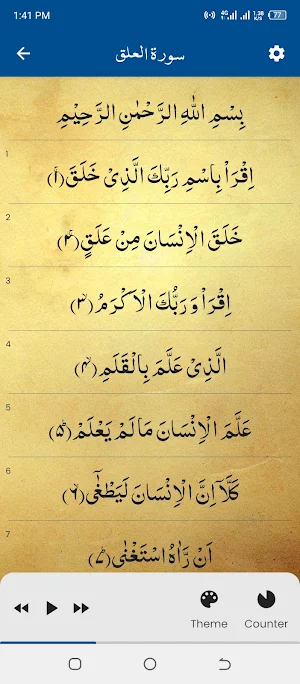 1:41 PM 4G 1.38 K/S 77
سورة العلق
بِسْمِ اللهِ الرَّحْمٰنِ الرَّحِيْمِ
1
اِقْرَاْ بِاسْمِ رَبِّكَ الَّذِىْ خَلَقَ ﴿۱﴾
2
خَلَقَ الْاِنْسَانَ مِنْ عَلَقٍ ﴿۲﴾
3
اِقْرَاْ وَرَبُّكَ الْاَكْرَمُ ﴿۳﴾
4
الَّذِىْ عَلَّمَ بِالْقَلَمِ ﴿۴﴾
5
عَلَّمَ الْاِنْسَانَ مَا لَمْ يَعْلَمْ ﴿۵﴾
6
كَلَّاۤ اِنَّ الْاِنْسَانَ لَيَطْغٰٓى ﴿۶﴾
7
اَنْ رَّاٰهُ اسْتَغْنٰى ﴿۷﴾
Theme Counter